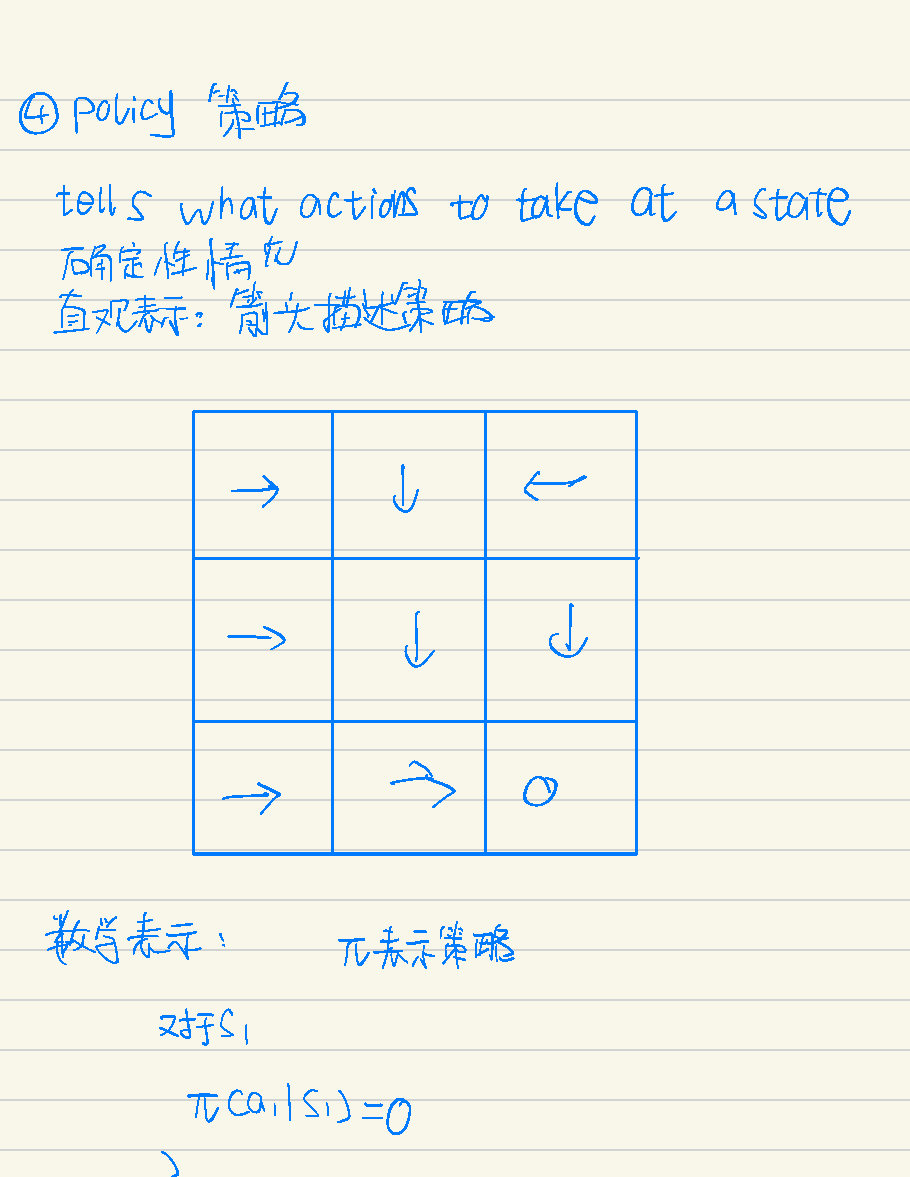 ④ policy 策略
tells what actions to take at a state
确定性情况
直观表示：箭头描述策略
→ ↓ ←
→ ↓ ↓
→ → O
数学表示： π表示策略
对于S₁
π(a₁|S₁)=0